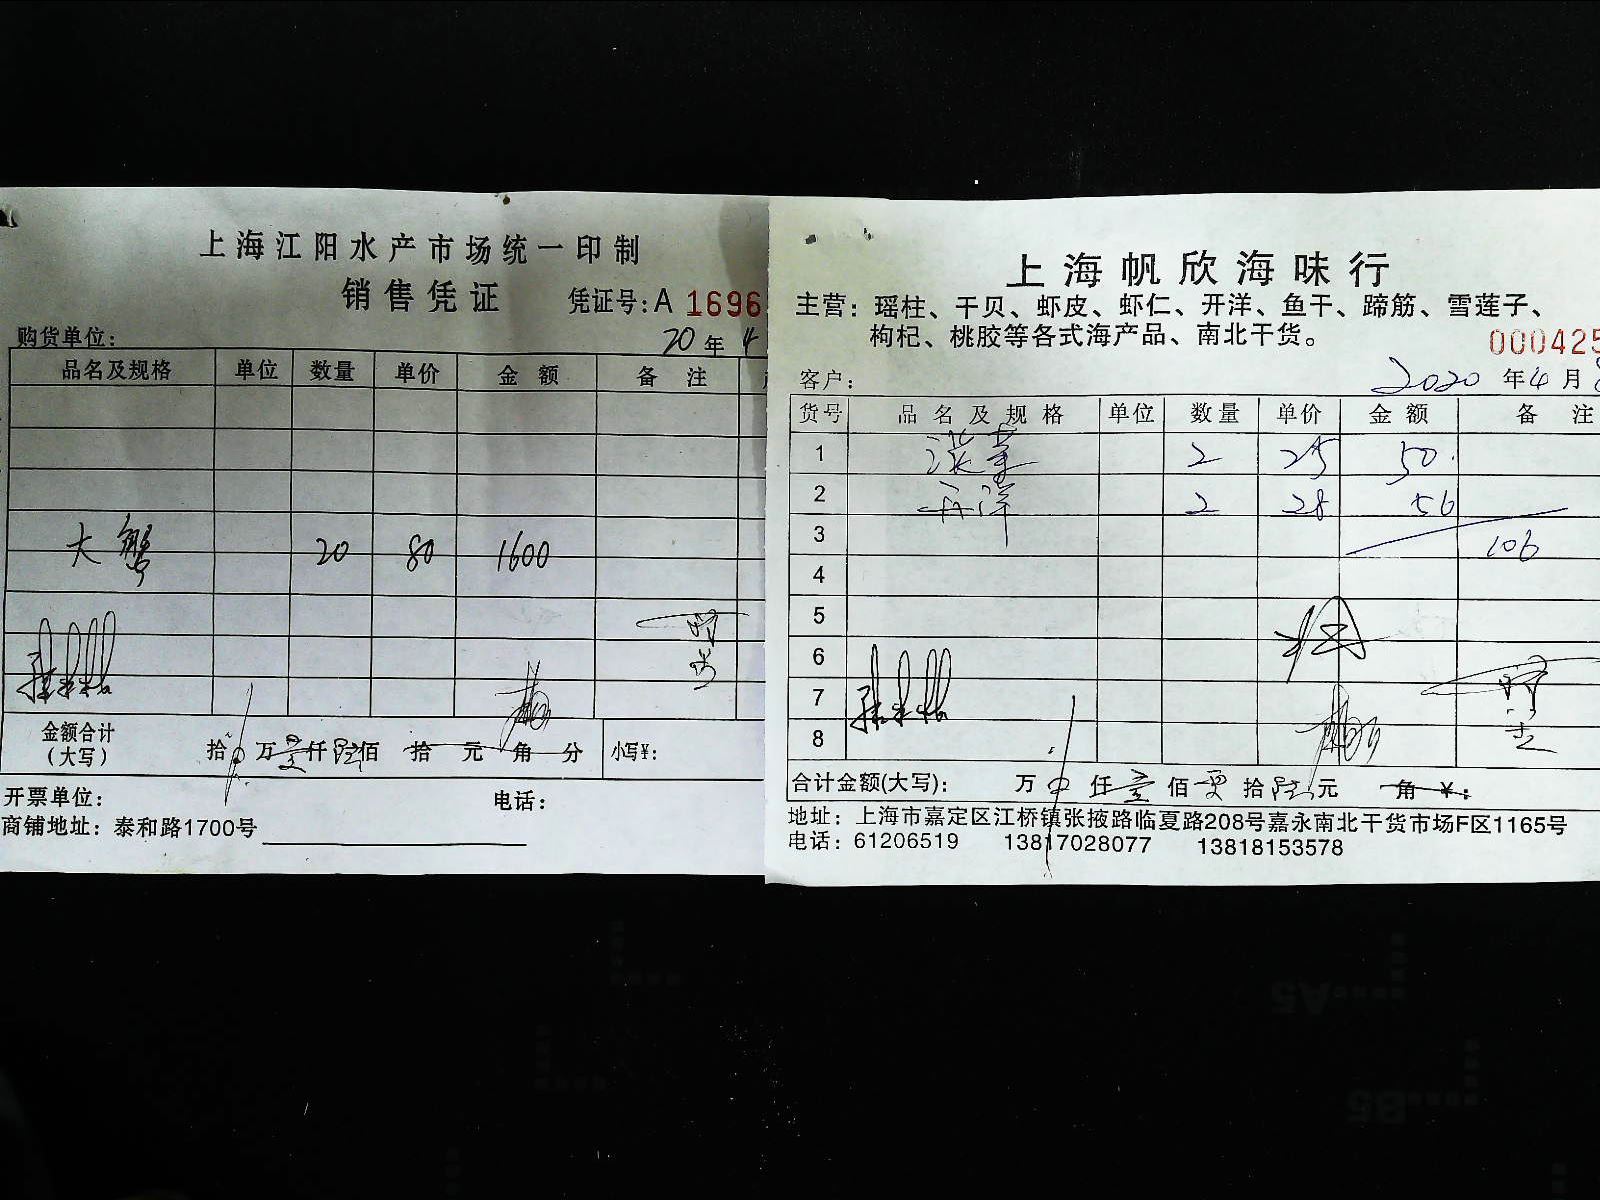 上海江阳水产市场统一印制
销售凭证 凭证号:A 1696
购货单位:
20年4
品名及规格 单位 数量 单价 金额 备注
大蟹 20 80 1600
金额合计
(大写)
拾 万壹仟陆佰 拾 元 角 分 小写¥:
开票单位: 电话:
商铺地址:泰和路1700号
上海帆欣海味行
主营:瑶柱、干贝、虾皮、虾仁、开洋、鱼干、蹄筋、雪莲子、
枸杞、桃胶等各式海产品、南北干货。
000425
客户: 2020年4月
货号 品名及规格 单位 数量 单价 金额 备注
1 淡菜 2 25 50
2 开洋 2 28 56
3 106
4
5
6
7
8
合计金额(大写): 万 仟壹佰零拾陆元 角 ¥:
地址:上海市嘉定区江桥镇张掖路临夏路208号嘉永南北干货市场F区1165号
电话:61206519 13817028077 13818153578
A5
B5